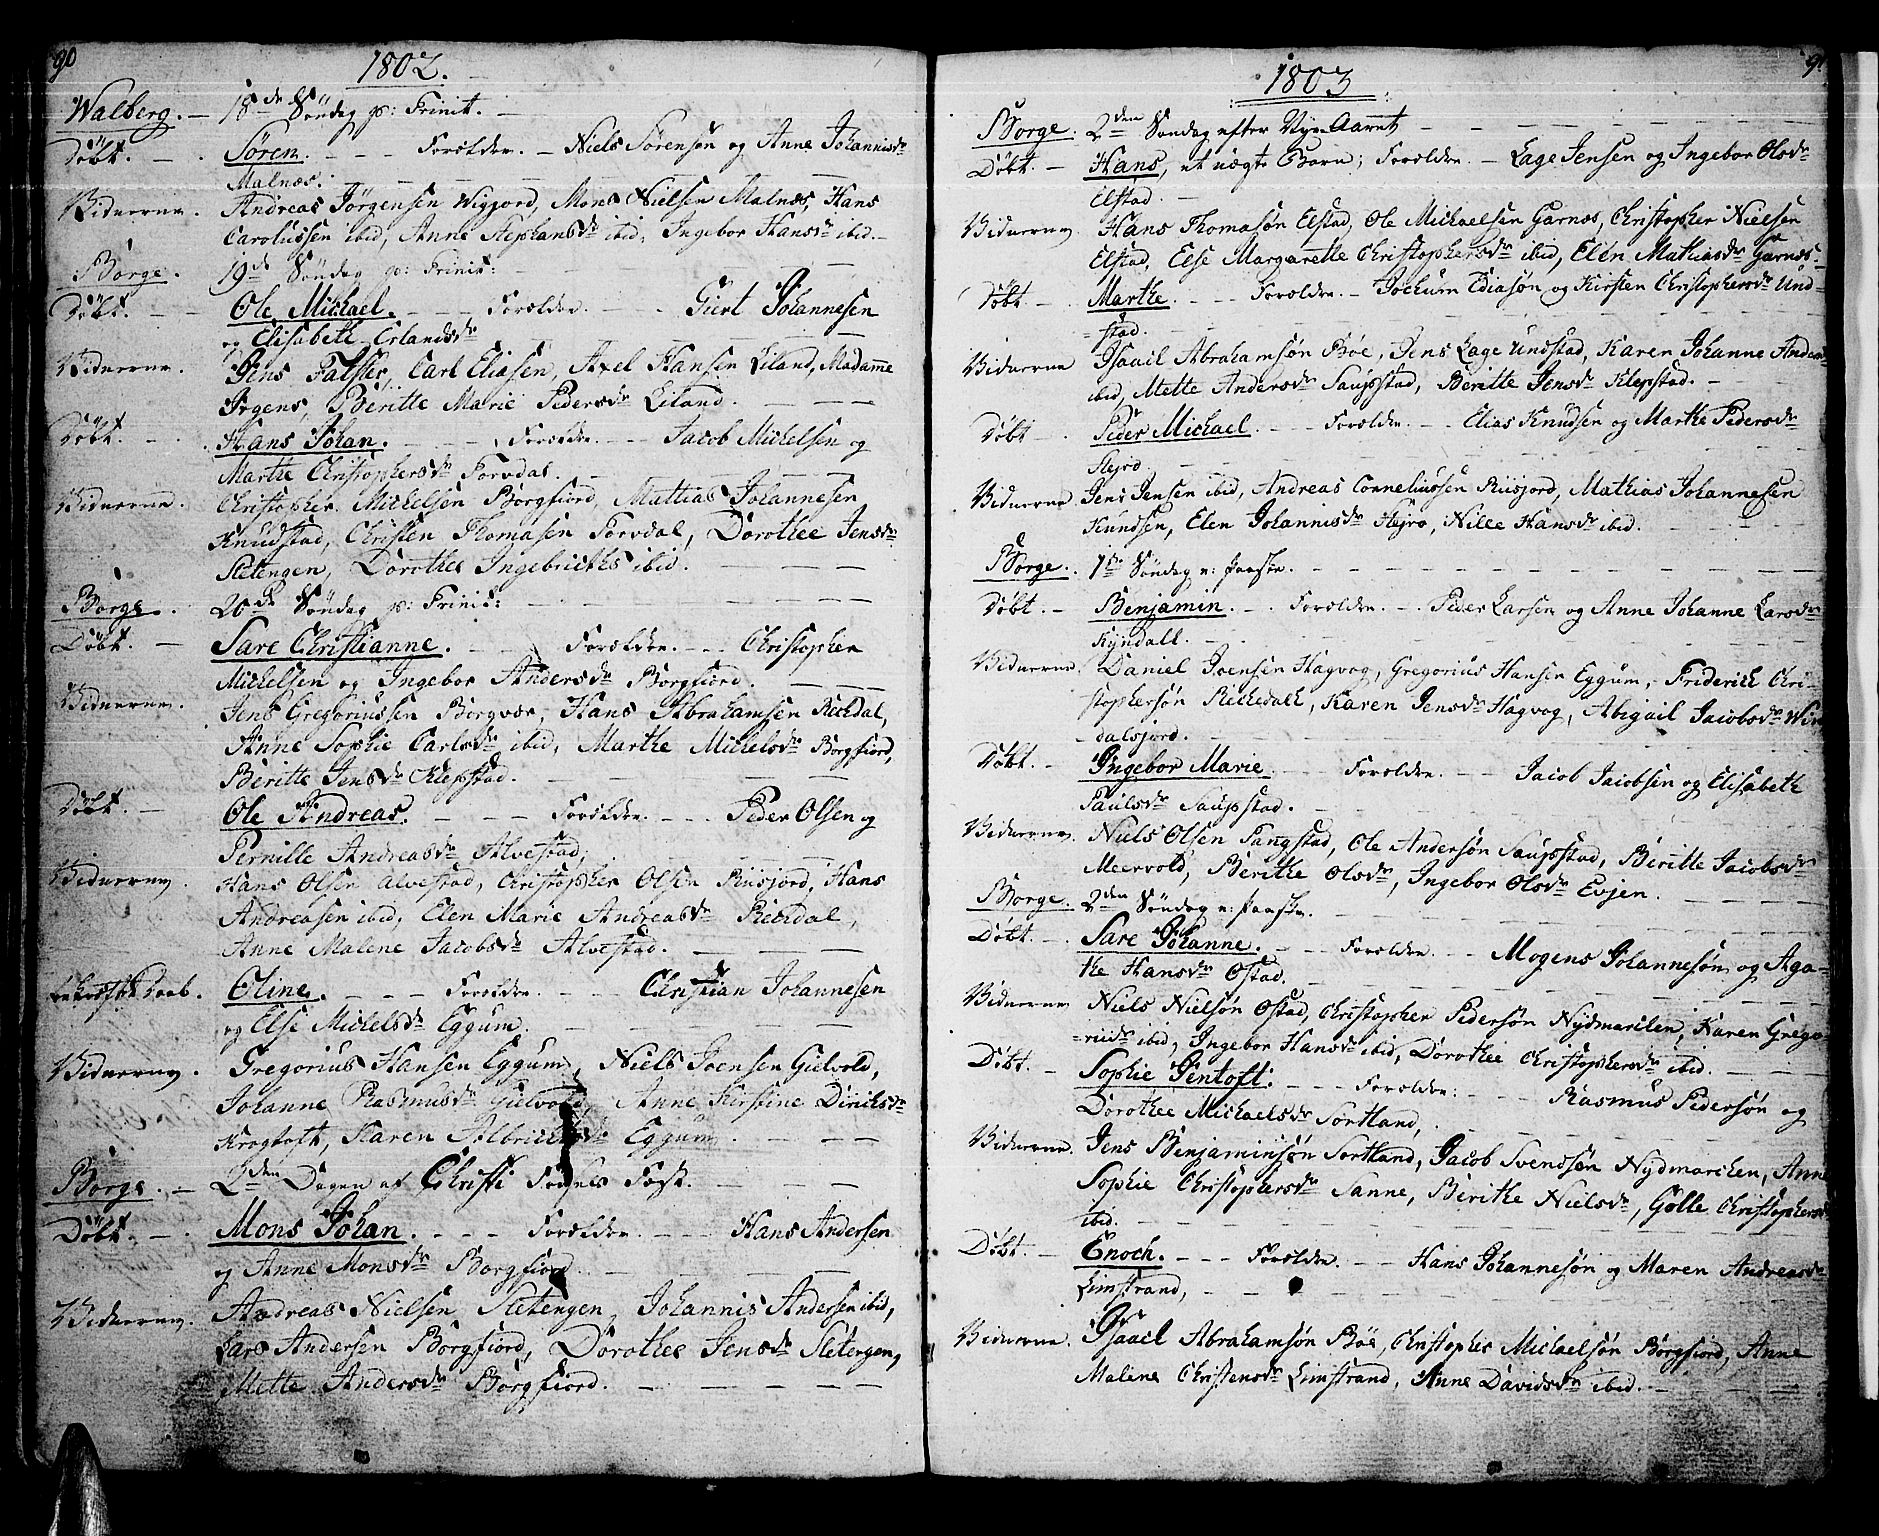 90
1802.
Walberg. - 18de Søndag p: Trinit. -
Døbt. - Søren. - - Forældre. - Niels Sørensøn og Anne Johannisdr
Malnæs. -
Vidnerne. Andreas Jörgensen Wigjord, Mons Nielsen Malnæs, Hans
Carolussen ibid, Anne Stephansdr ibid, Ingebor Hansdr ibid. -
Borge. 19de Søndag p: Trinit: -
Døbt. - - Ole Michael. - - - Forældre. - - - Giert Johannesen
og Elisabeth Erlandsdr
Vidnerne. Jens Falster, Carl Eliasen, Axel Hansen Leland, Madamme
Irgens, Beritte Marie Pedersdr Leland. - - -
Døbt. - - Hans Johan. - - - Forældre. - - Jacob Michelsen og
Marthe Christophersdr Torvdal. -
Vidnerne. Christopher Michelsen Borgfiord, Mattias Johannesen
Knudstad, Christen Thomasen Torvdal, Dorothee Jensdr
Stetengen, Dorothea Ingebrigths ibid. - - -
Borge. 20de Søndag p: Trinit: - - -
Døbt. - Sare Christianne. - - Forældre. - - Christopher
Michelsen og Ingebor Andersdr Borgfiord. - - -
Vidnerne. Jens Gregoriussen Borgvær, Hans Abrahamsen Rekdal,
Anne Sophie Carlsdr ibid, Marthe Michelsdr Borgfiord,
Beritte Jensdr Klepstad. - - -
Døbt. - Ole Andreas. - - - Forældre. - - - Peder Olsen og
Pernille Andreasdr Alvestad;
Vidnerne. Hans Olsen Alvestad, Christopher Olsen Riisjord, Hans
Andreasen ibid, Elen Marie Andreasdr Rekdal,
Anne Malene Jacobsdr Alvestad. - - -
Daab. Oline. - - - Forældre. - - Christian Johannesen
og Else Michelsdr Eggum. - - -
Vidnerne. Gregorius Hansen Eggum, Niels Joensen Gielvold,
Johanne Rasmusdr Gielvold, Anne Kirstine Diriksdr
Krogtoft, Karen Eggum. - - -
Borge. - 2den Dagen af Christi Fødsels Fest. - - -
Døbt. - - Mons Johan. - - - Forældre. - - - Hans Andersen
og Anne Monsdr Borgfiord - - -
Vidnerne. Andreas Nielsen Stetengen, Johannis Andersen ibid,
Lars Andersen Borgfiord, Dorothea Jensdr Stetergen,
Mette Andersdr Borgfiord. - - -
1803
Borge. 2den Søndag efter Nye-Aaret - - -
Døbt. - Hans, et uægte Barn; Forældre. - Lage Jensen og Ingebor Olsdr
Elstad. -
Vidnerne Hans Thomasøn Elstad, Ole Michaelsen Garnæs, Christopher Nielsen
Elstad, Else Margarethe Christophersdr ibid, Elen Mathiasdr Garnæs. -
Døbt - Marthe. - - - Forældre. - Jochum Ediasøn og Kirsten Christophersdr Und-
=stad. - - -
Vidnerne Isaach Abrahamsøn Böe, Jens Lage Undstad, Karen Johanne Anders
ibid, Mette Andersdr Saupstad, Beritte Jensdr Klepstad. -
Døbt - Peder Michael. - - - Forældre. - - Elias Knudsen og Marthe Pedersdr
- - -
Vidnerne Jens Jensen ibid, Andreas Corneliussen Riisjord, Mathias Johannesen
Knudsen, Elen Johannisdr, Nille Hansdr ibid. - - -
Borge. 1ste Søndag e: Paaske. - - -
Døbt. - Benjamin. - - Forældre. - - Peder Larsen og Anne Johanne Larsdr
Kyndall. - - -
Vidnerne Daniel Joensen Hagvog, Gregorius Hansen Eggum, Friderich Chri-
stophersøn Rekkedall, Karen Jensdr Hagvog, Abigail Jacobsdr Win
dalsjord. - - -
Døbt. - Ingebor Marie - - - Forældre. - - Jacob Jacobsen og Elisabeth
Paulsdr Saupstad. - - -
Vidnerne. Niels Olsen Pangstad, Ole Andersøn Saupstad, Beritte Jacobsdr
Meervold, Berithe Olsdr, Ingebor Olsdr Evjen. - -
Borge. 2den Søndag e: Paaske. - - -
Døbt. - - Sare Johanne. - - - Forældre. - - Mogens Johannesøn og Aga-
the Hansdr Ostad. - - -
Vidnerne Niels Nielsøn Ostad, Christopher Pedersøn Nydmarchen, Karen Grego-
=riidr ibid, Ingebor Hansdr ibid, Dorothee Christophersdr ibid. - - -
Døbt. - Sophie Gentoft. - - - Forældre: - - - Rasmus Pedersøn og
Dorothee Michaelsdr Sortland,
Vidnerne. Jens Benjaminsøn Sortland, Jacob Svendsøn Nydmarchen, Anne
Sophie Christophersdr Sanne, Berithe Nielsdr, Golle Christophersdr
ibid. - - -
Døbt. - Enoch. - - - Forældre. - - Hans Johannesøn og Maren Andreasdr
Limstrand, - - -
Vidnerne. Isaach Abrahamsøn Böe, Christopher Michaelsøn Borgfiord, Anne
Malene Christensdr Limstrand, Anne Davidsdr ibid. - - -